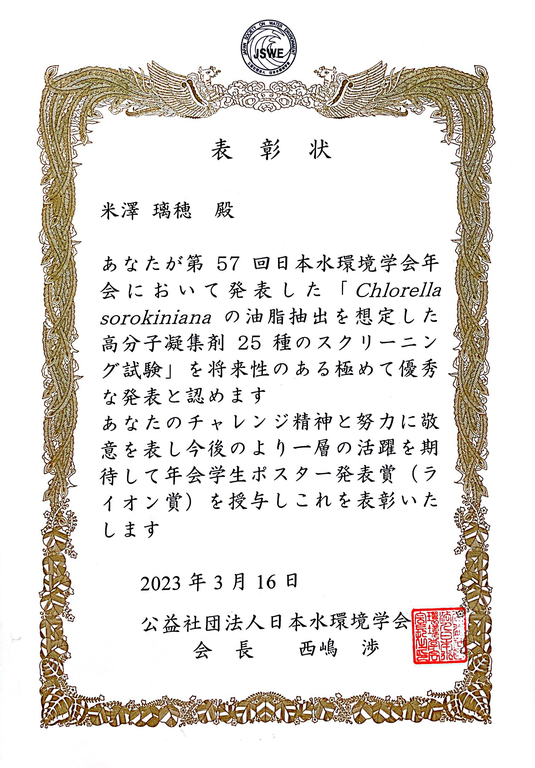 JAPAN SOCIETY ON WATER ENVIRONMENT
JSWE
表彰状
米澤 璃穂 殿
あなたが第 57 回日本水環境学会年
会において発表した「Chlorella
sorokiniana の油脂抽出を想定した
高分子凝集剤 25 種のスクリーニン
グ試験」を将来性のある極めて優秀
な発表と認めます
あなたのチャレンジ精神と努力に敬
意を表し今後のより一層の活躍を期
待して年会学生ポスター発表賞（ラ
イオン賞）を授与しこれを表彰いた
します
2023 年 3 月 16 日
公益社団法人日本水環境学会
会 長 西嶋 渉